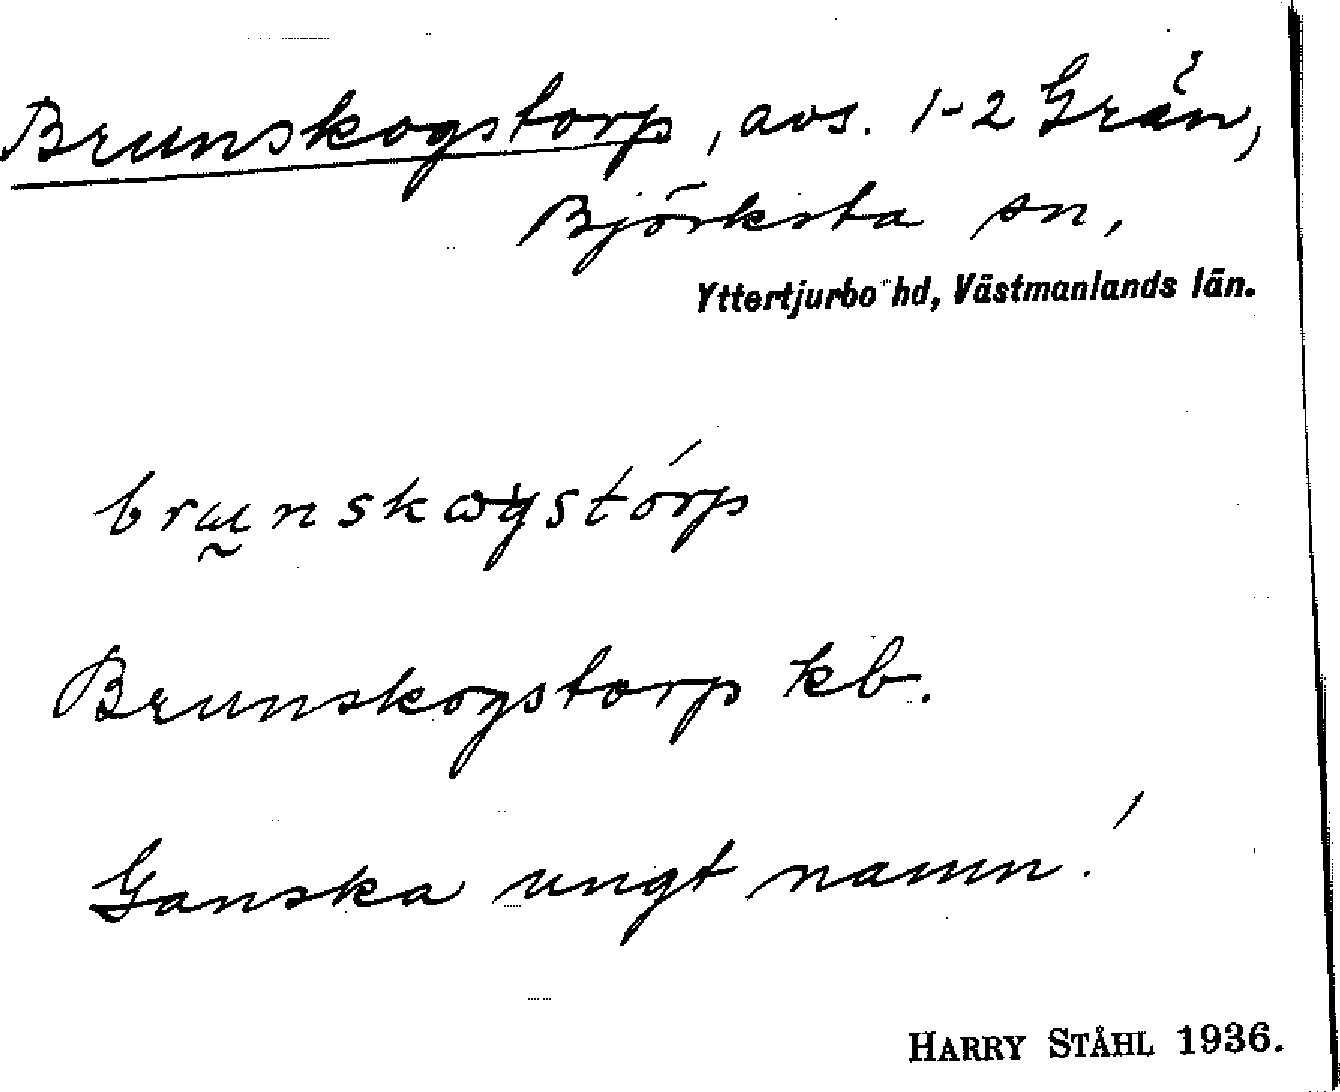 Brunskogstorp, avs. 1-2 Grän,
Björksta sn,
Yttertjurbo hd, Västmanlands län.
brunskogstórp
Brunskogstorp kb.
Ganska ungt namn!
HARRY STÅHL 1936.